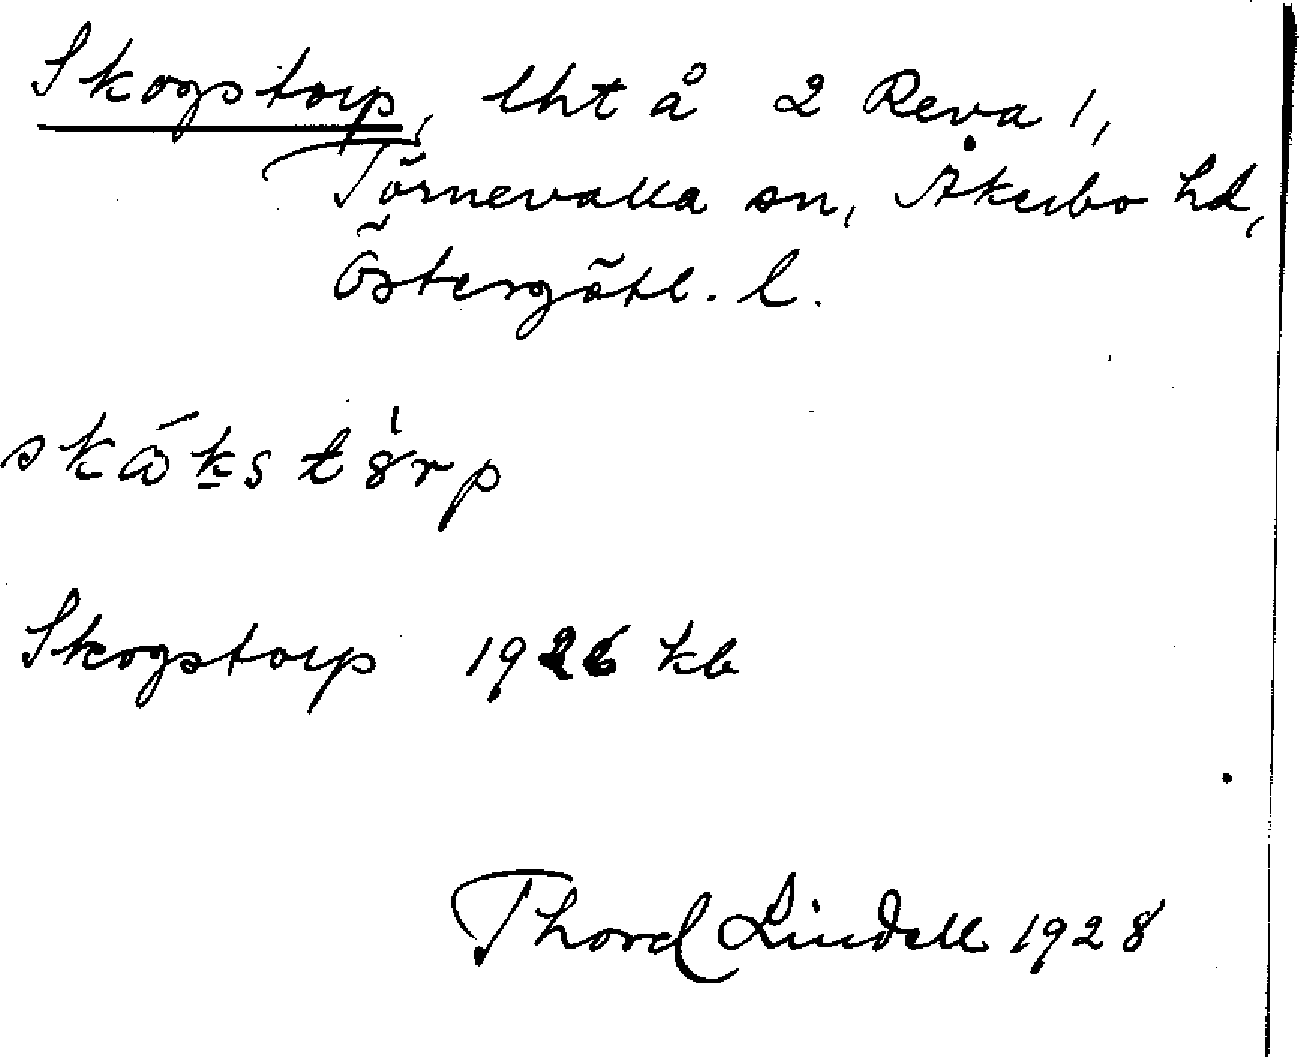 Skogstorp, lht å 2 Reva 1,
Törnevalla sn, Åkerbo hd,
Östergötl. l.
skáks tȣ̍rp
Skogstorp 1926 kb
Thord Lindell 1928